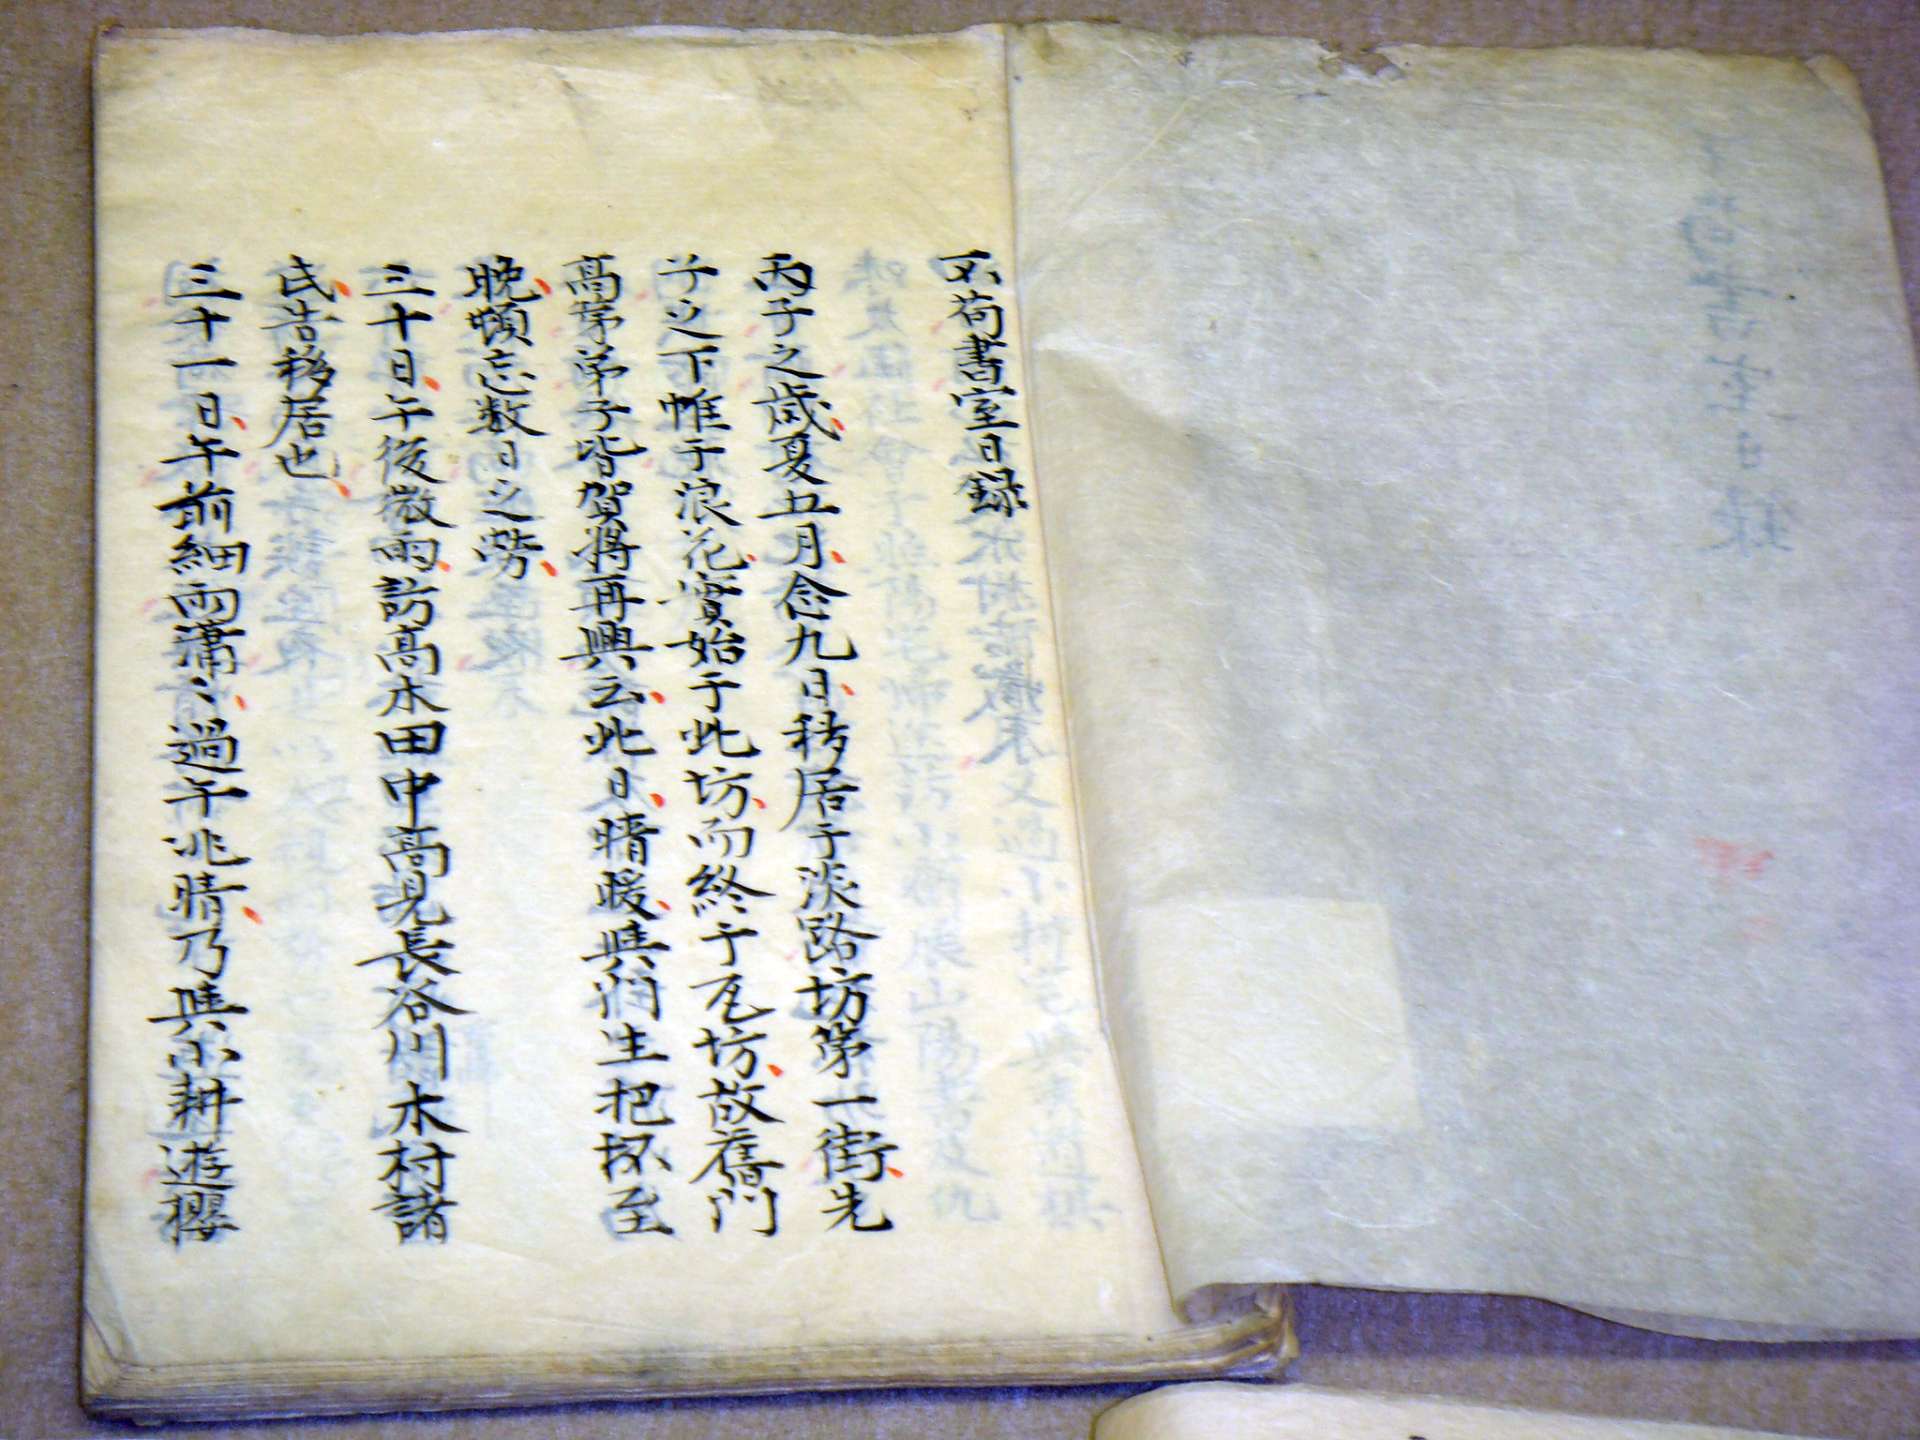 不荷書室日録
丙子之歳夏五月念九日移居于淡路坊第一街先
子之下帷于浪花實始于此坊而終于瓦坊故舊門
高第弟子皆賀將再興云此日晴暖與諸生把杯至
晩頓忘数日之労
三十日午後微雨訪高木田中高見長谷川木村諸
氏告移居也
三十一日午前細雨瀟〻過午兆晴乃與小耕遊櫻